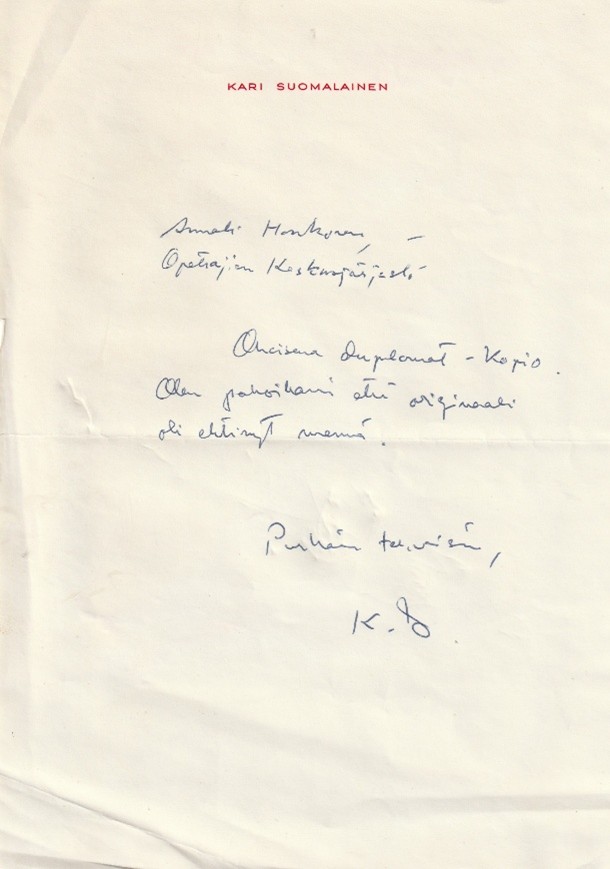 KARI SUOMALAINEN
Anneli Honkonen,
Opettajien Keskusjärjestö
Oheisena - kopio.
Olen pahoillani että originaali
oli ehtinyt mennä.
Parhain terveisin,
K. S.